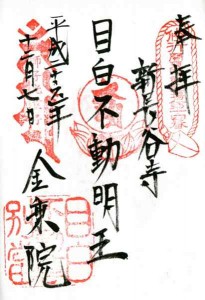 奉拝
新長谷寺
目白不動明王
平成二十六年
十二月七日
金乗院
目白
別當